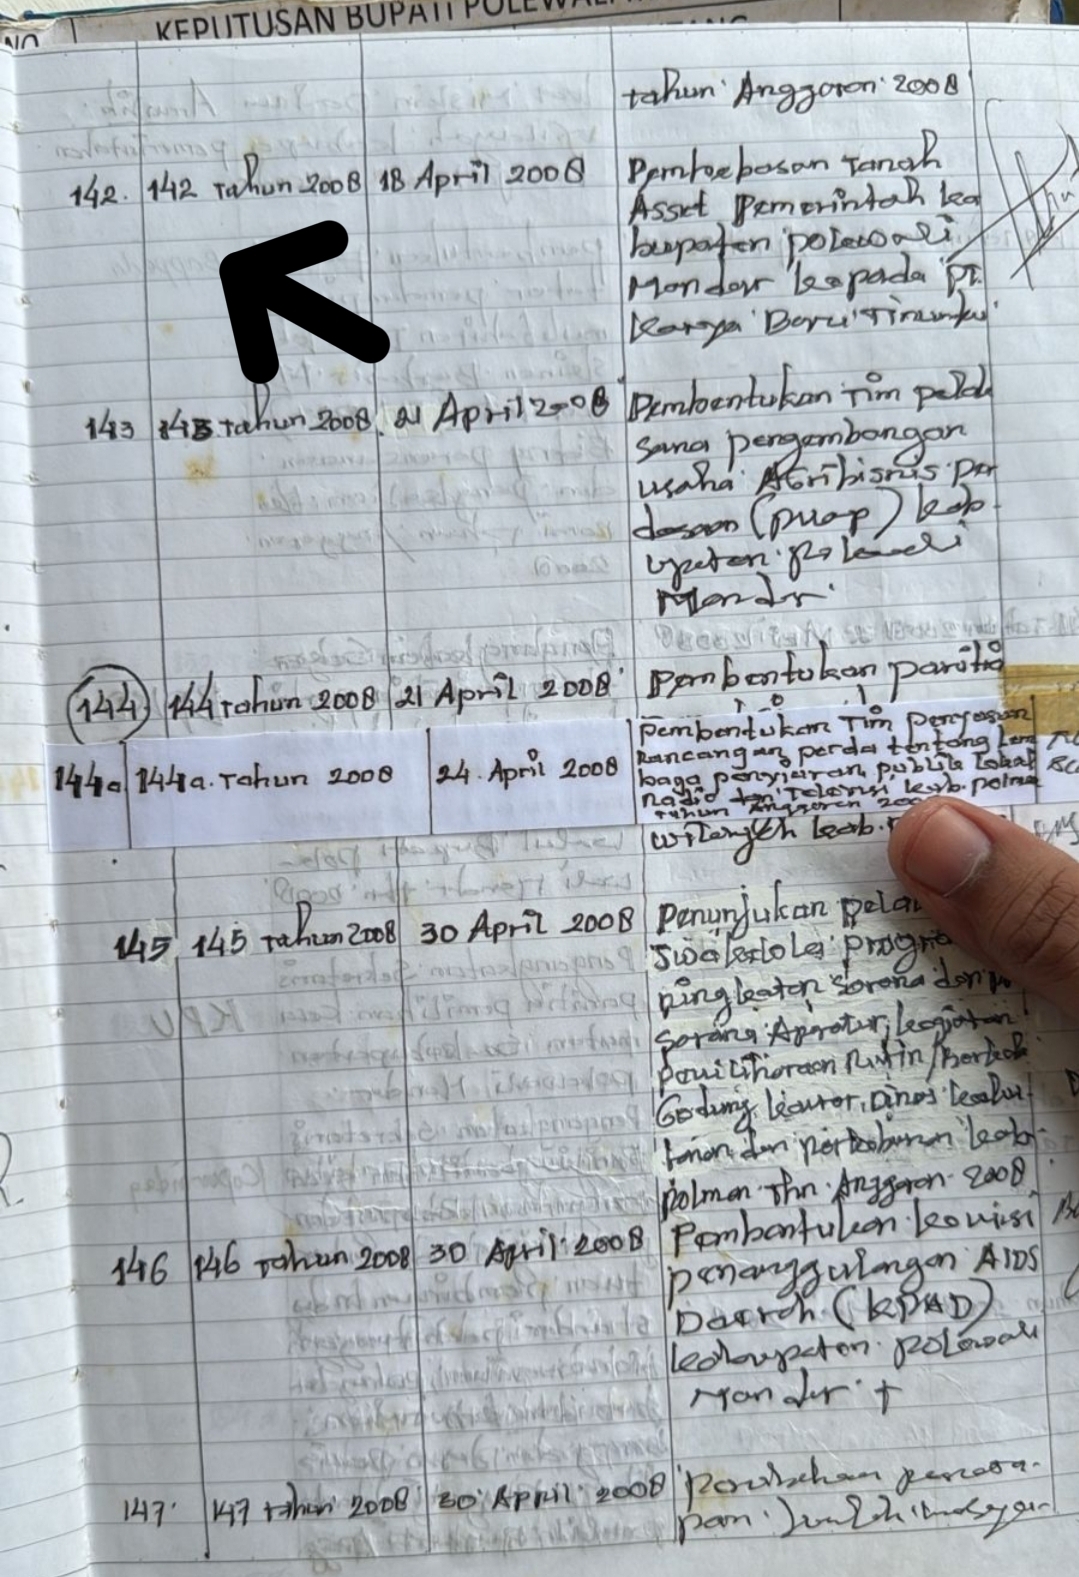 NO KEPUTUSAN BUPATI POLEWALI
tahun Anggaran 2008
142. 142 Tahun 2008 18 April 2008 Pembebasan Tanah
Asset Pemerintah Ka
bupaten polewali
Mandar kepada PT.
Karya Baru Tinumbu
143 143 tahun 2008 21 April 2008 Pembentukan Tim pelak
sana pengembangan
usaha Agribisnis per
desaan (PUAP) kab
upaten polewali
Mandar.
144 144 tahun 2008 21 April 2008 Pembentukan panitia
144a 144a. Tahun 2008 24. April 2008 Pembentukan Tim penyusun
Rancangan perda tentang Lem
baga penyiaran publik Lokal
Radio dan Televisi kab. polma
tahun Anggaran
wilayah kab.
145 145 tahun 2008 30 April 2008 Penunjukan
Swakelola
ningkatan sarana dan
sarana Aparatur, kegiatan
pemiliharaan Rutin/Berkala
Gedung kantor, Dinas kehu
tanan dan perkebunan kab.
polman Thn. Anggaran 2008
146 146 tahun 2008 30 April 2008 Pembentukan komisi
penanggulangan AIDS
Daerah (KPAD)
kabupaten polewali
Mandar
147. 147 tahun 2008 30 April 2008 Perubahan peneta
pan